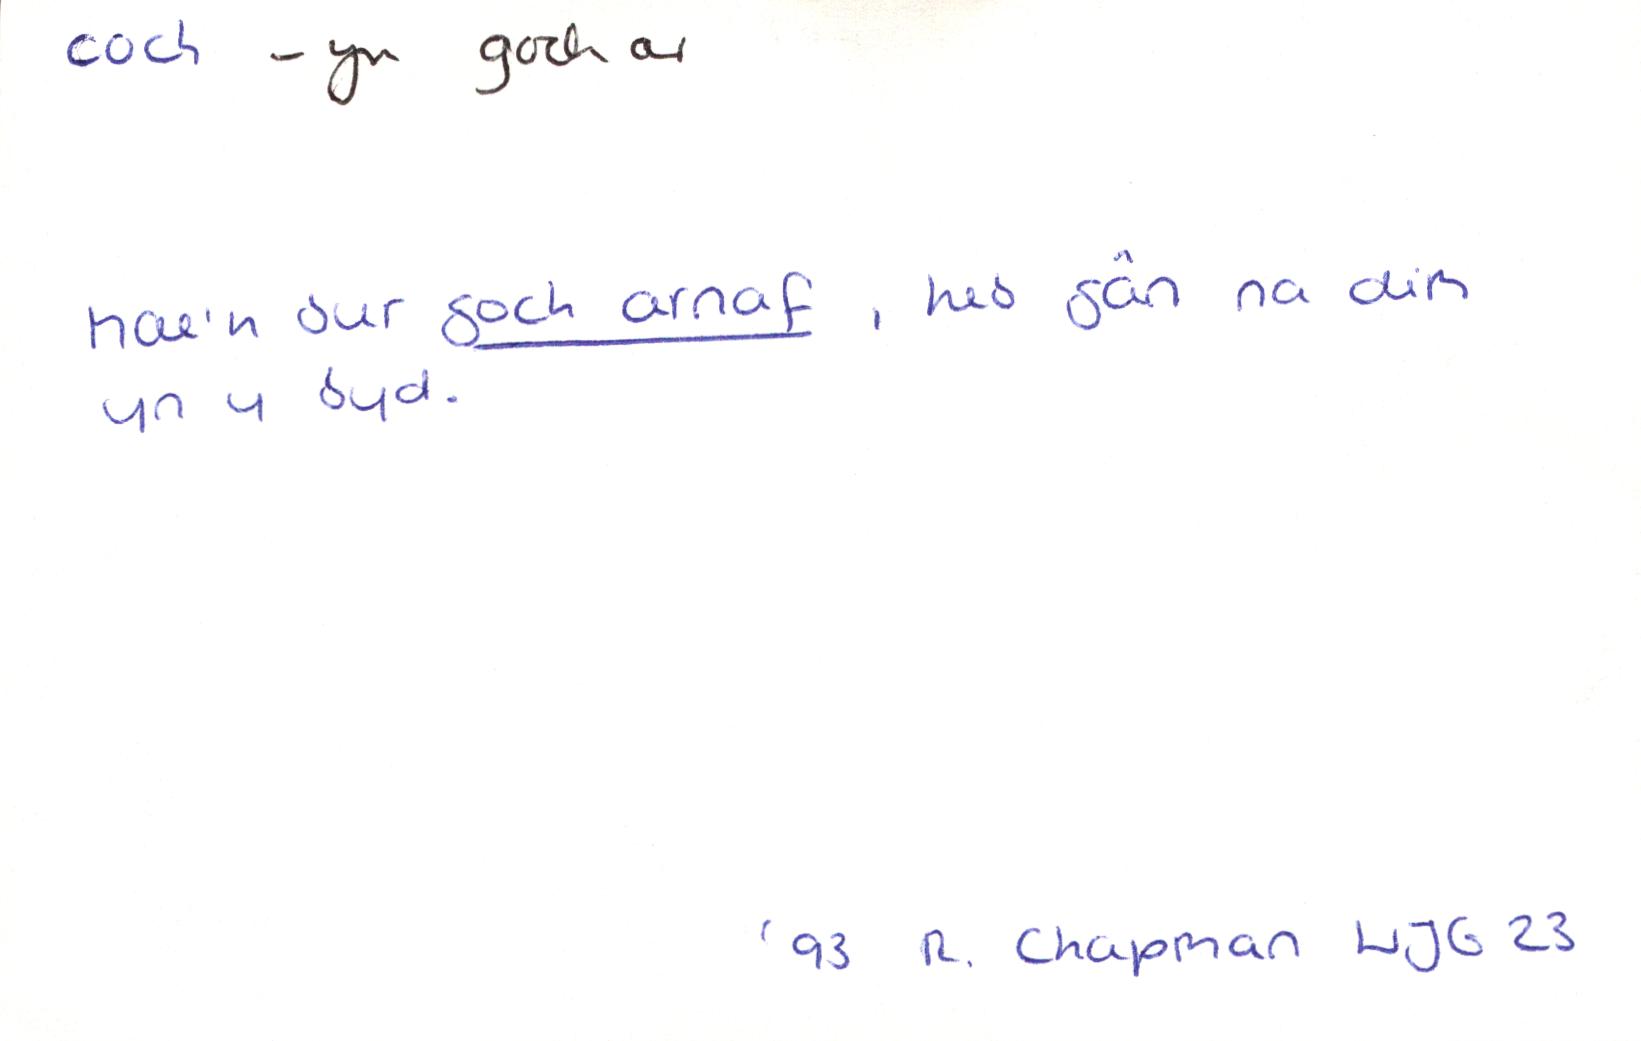 coch - yn goch ar
mae'n bur goch arnaf, heb gân na dim
yn y byd.
'93 R. Chapman WJG 23